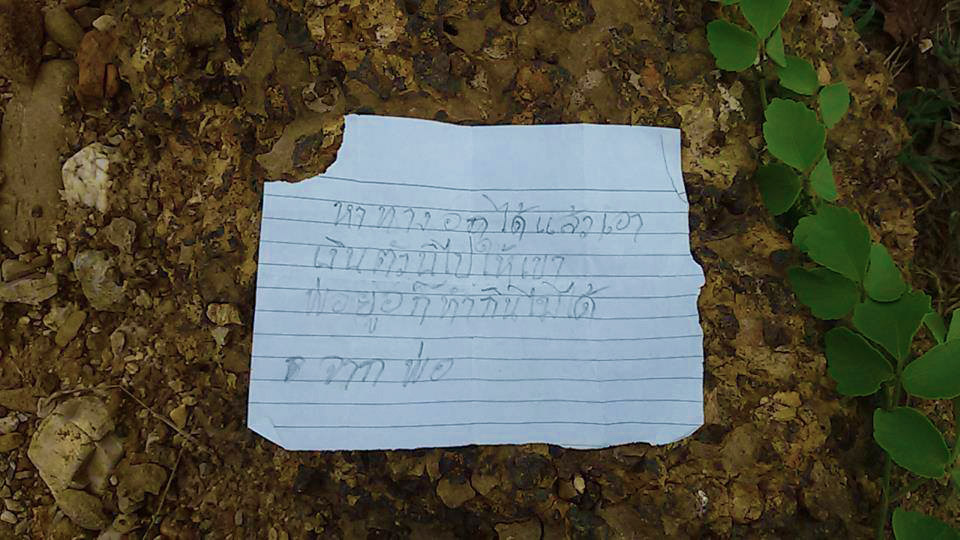 หาทางออกได้แล้วเอา
เงินตัวนี้ไปให้เขา
พ่ออยู่ก็ทำกินไม่ได้
จากพ่อ